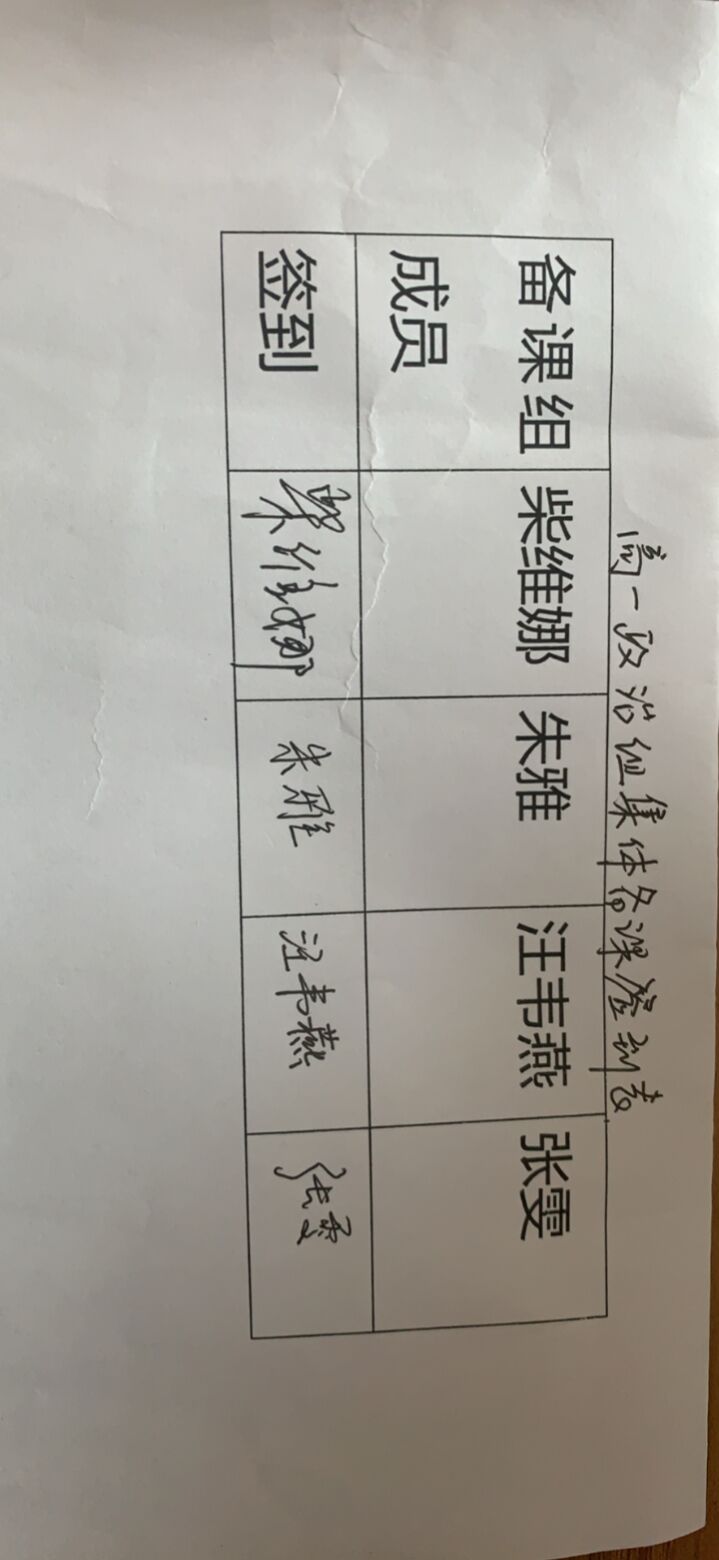 高一政治组集体备课签到表
备课组成员 柴维娜 朱雅 汪韦燕 张雯
签到 柴维娜 朱雅 汪韦燕 张雯